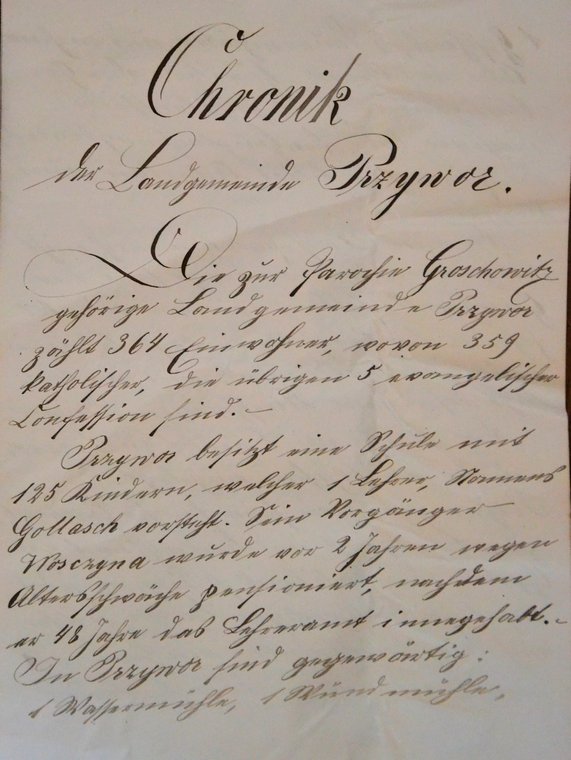 Chronik
der Landgemeinde Przywor.
Die zur Parochie Groschowitz
gehörige Landgemeinde Przywor
zählt 364 Einwohner, wovon 359
katholischer, die übrigen 5 evangelischer
Confession sind.-
Przywor besitzt eine Schule mit
125 Kindern, welcher 1 Lehrer, Namens
Gollasch vorsteht. Sein Vorgänger
Wosczyna wurde vor 2 Jahren wegen
Altersschwäche pensioniert, nachdem
er 48 Jahre das Lehreramt innegehabt.-
In Przywor sind gegenwärtig:
1 Wassermühle, 1 Windmühle,